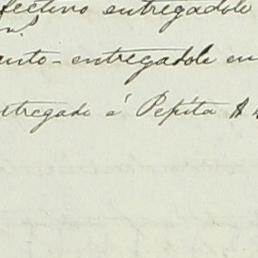 fectivo entregadole
n.
anto - entregadole en
ntregado á Pepita A